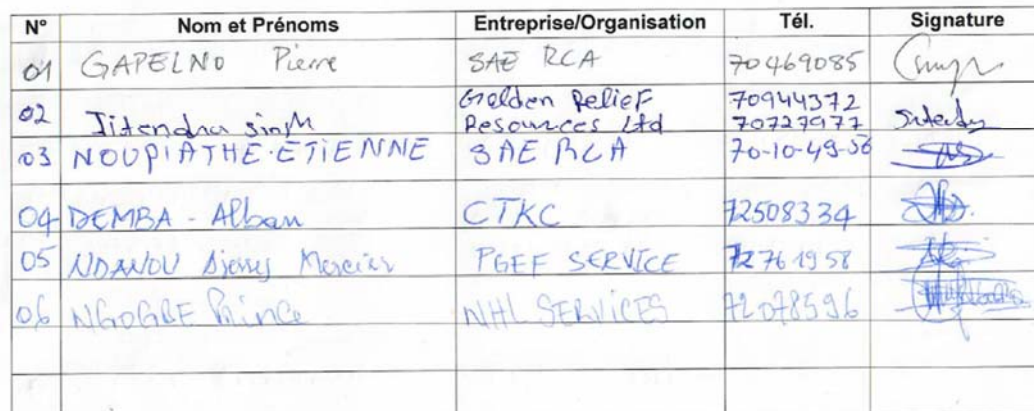 N° Nom et Prénoms Entreprise/Organisation Tél. Signature
01 GAPELNO Pierre SAE RCA 70469085
02 Jitendra singh Golden Relief Resources Ltd 70944372 70727977
03 NOUPIATHE-ETIENNE SAE RCA 70-10-49-56
04 DEMBA - Alban CTKC 72508334
05 NDANOU Mercier PGEF SERVICE 72761958
06 NGOGBE Prince NHL SERVICES 72078596